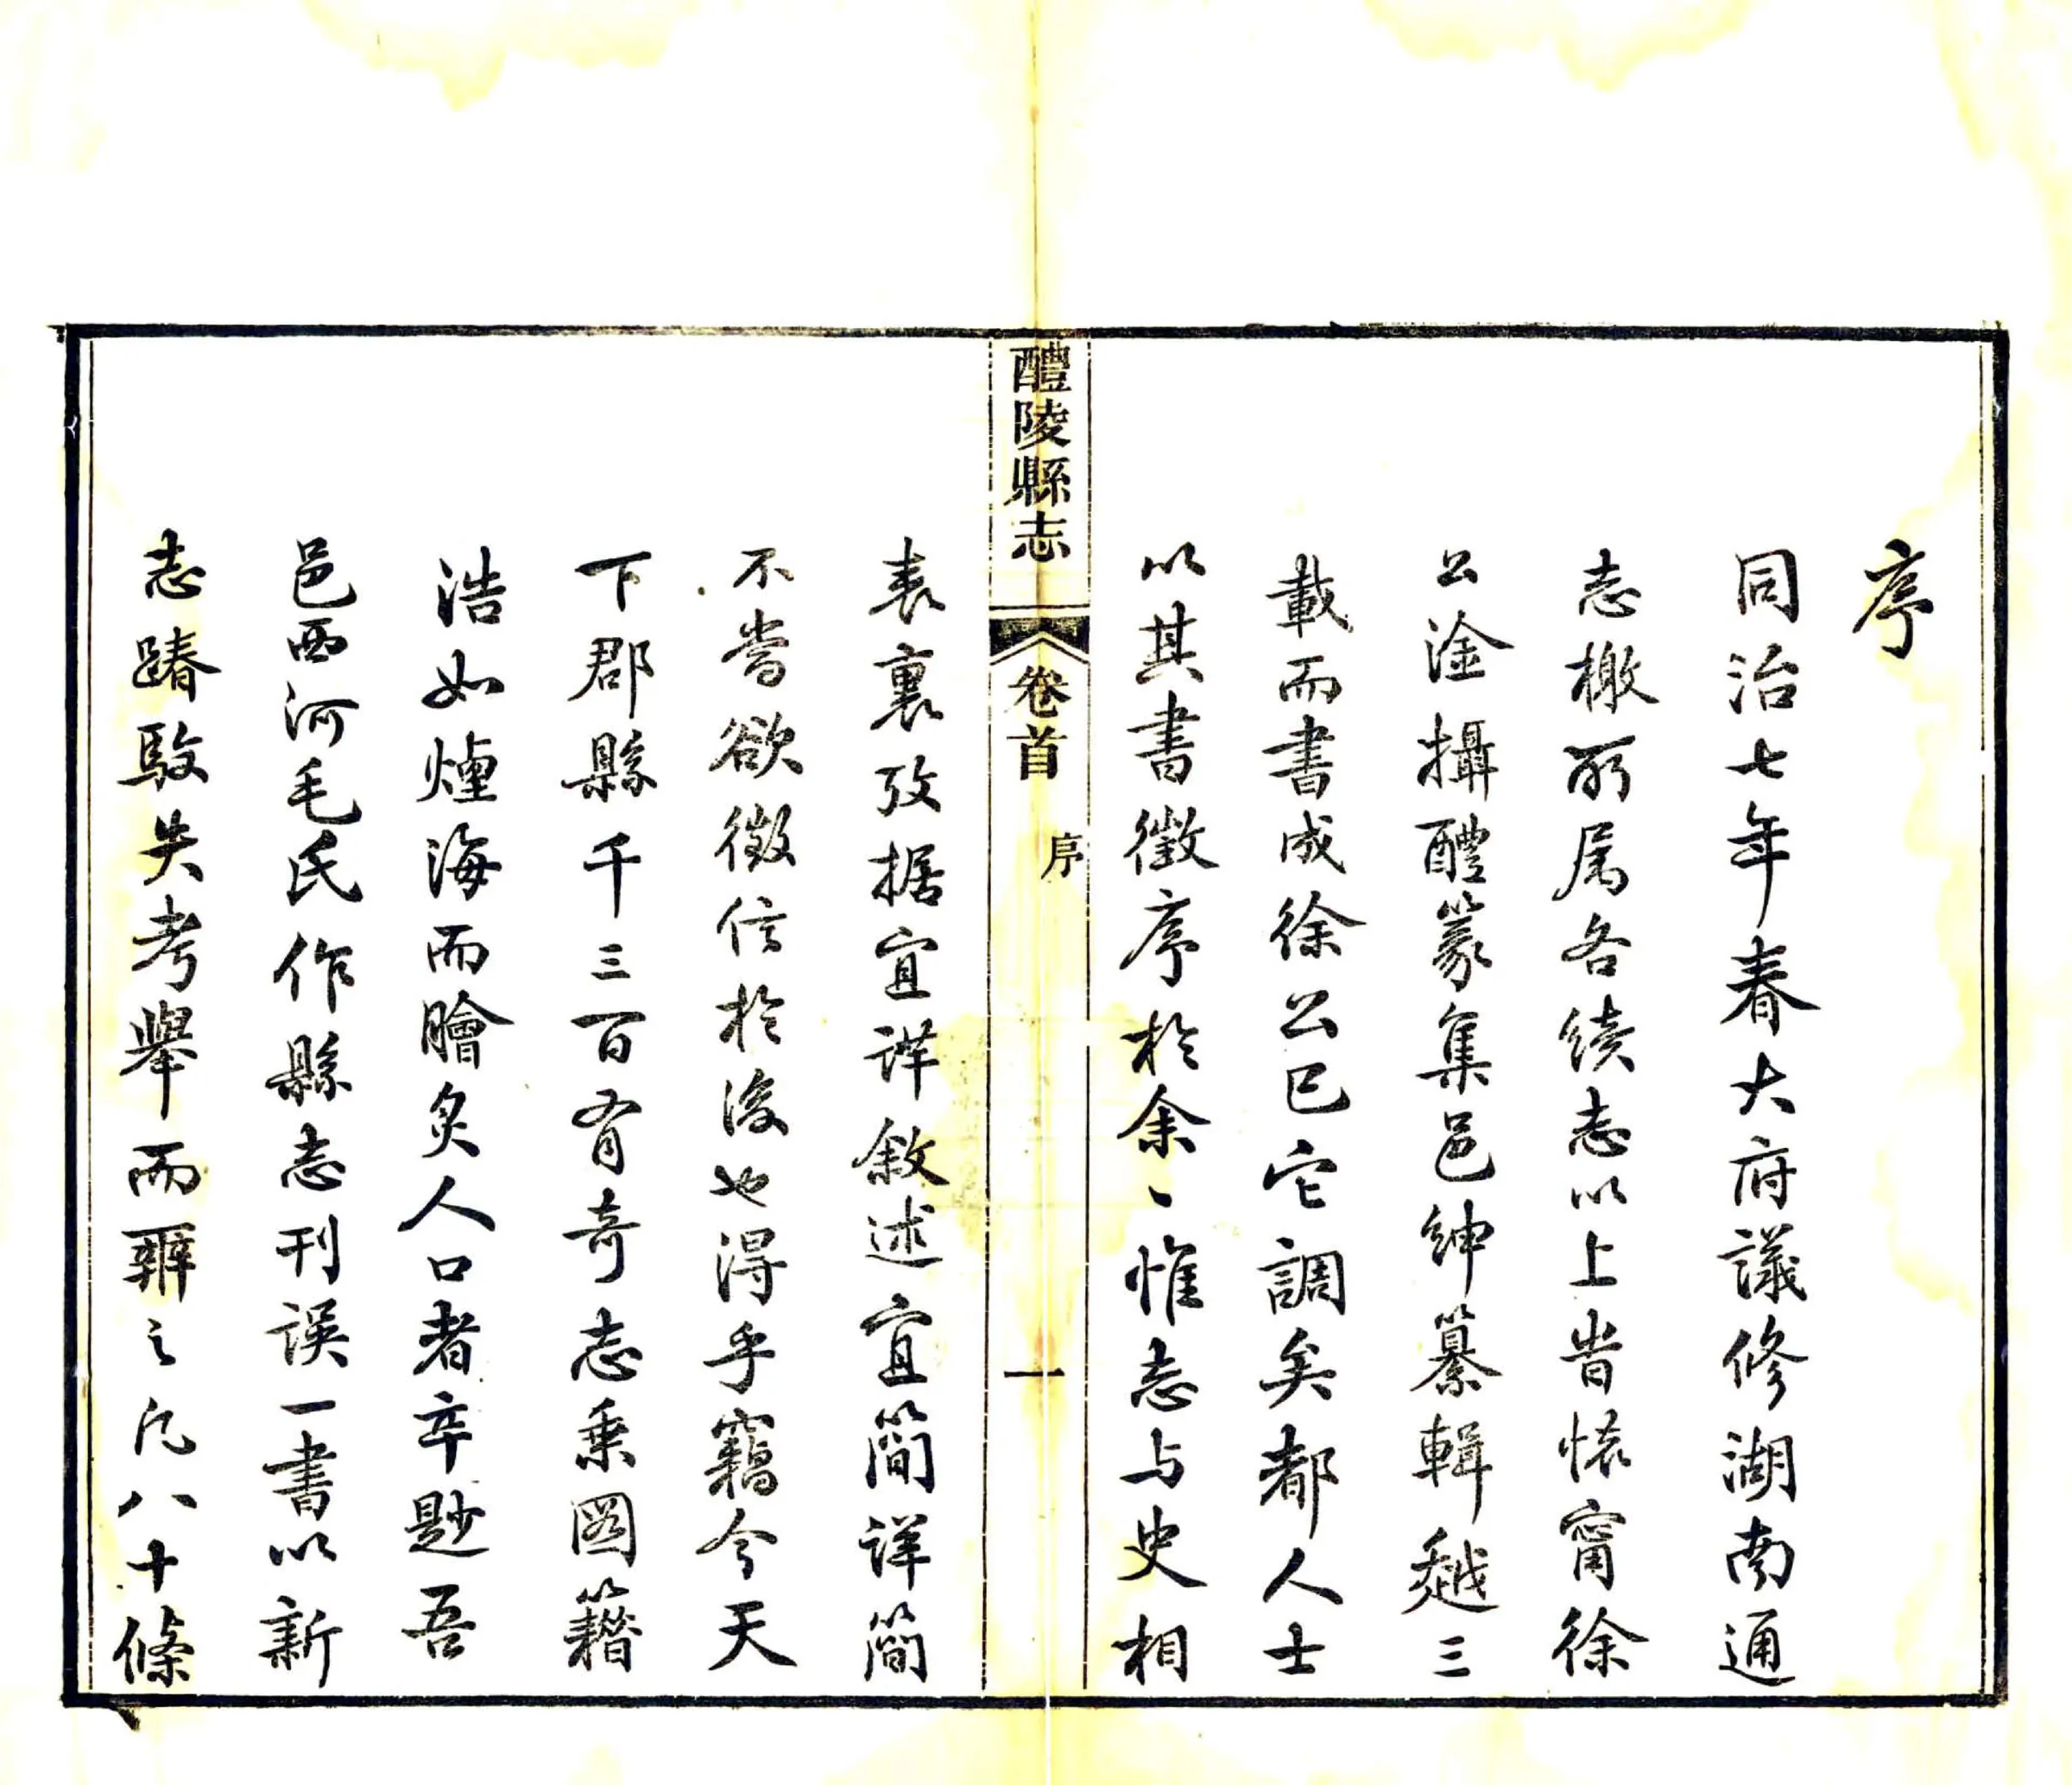 序
同治七年春大府議修湖南通
志檄所属各續志以上省懷甯徐
公淦攝醴篆集邑紳纂輯越三
載而書成徐公已它調矣都人士
以其書徵序於余、惟志与史相
醴陵縣志
卷首
序
一
表裏攷据宜詳敘述宜簡詳簡
不當欲徵信於後也得乎竊今天
下郡縣千三百有奇志乘圖籍
浩如煙海而膾炙人口者卒尟吾
邑西河毛氏作縣志刊誤一書以新
志踳駁失考舉而辨之凡八十條